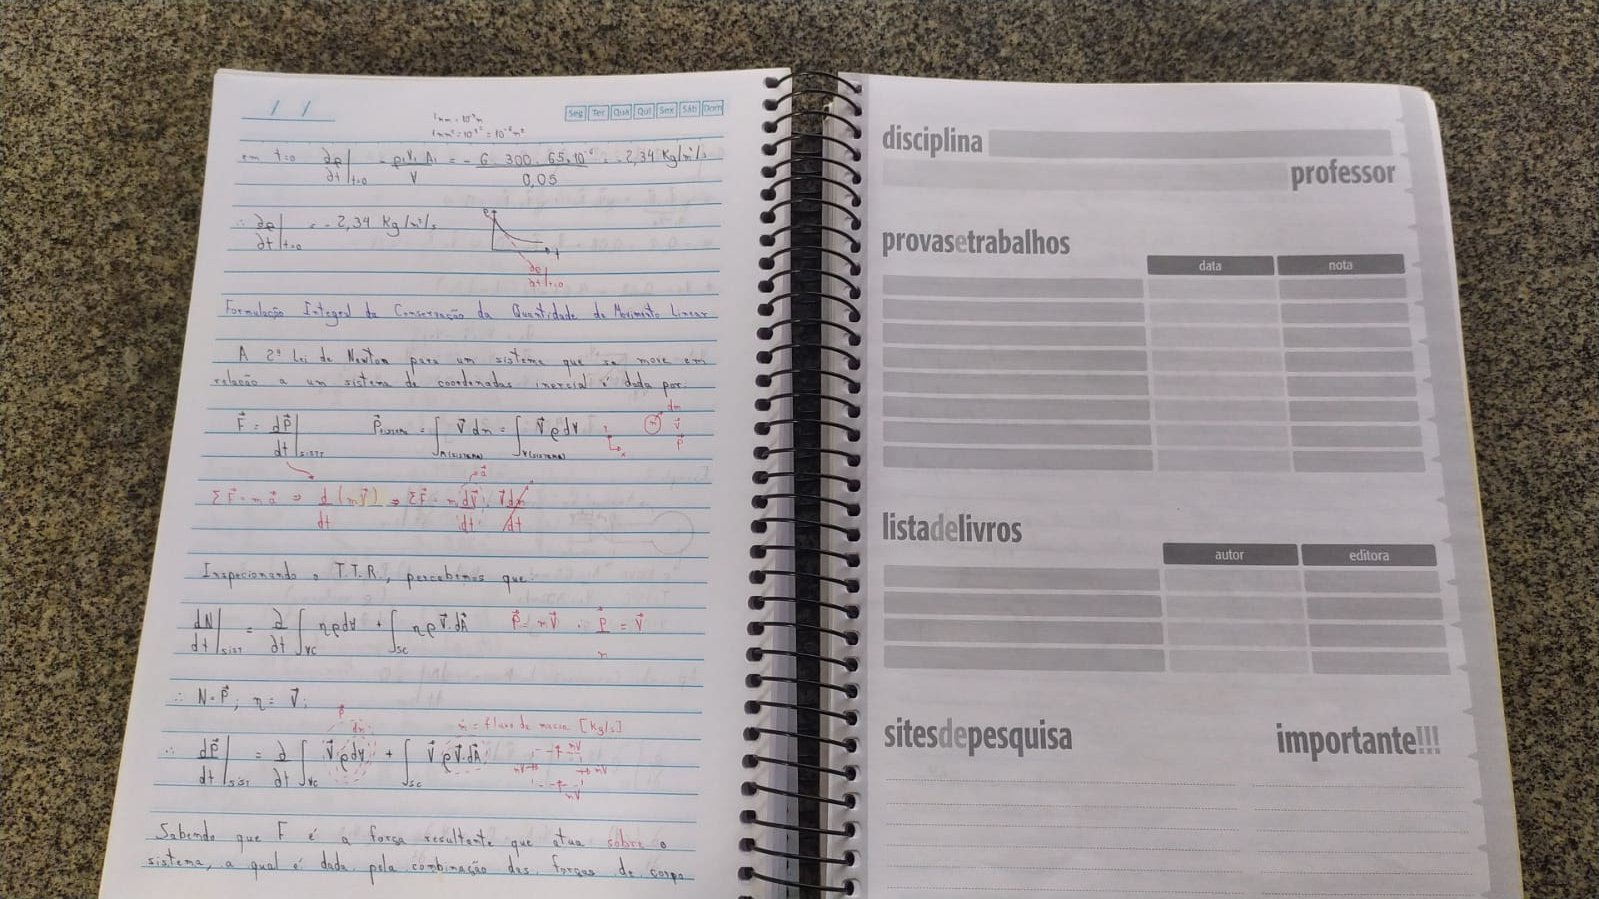 / /
Seg Ter Qua Qui Sex Sáb Dom
1mm = 10⁻³m
1mm² = 10⁻³˙² = 10⁻⁶m²
em t=0 ∂ρ/∂t|t=0 = -ρ₁V₁A₁/V = -6 . 300 . 65.10⁻⁶/0,05 = -2,34 Kg/m³/s
∴ ∂ρ/∂t|t=0 = -2,34 Kg/m³/s
ρ t
∂ρ/∂t|t=0
Formulação Integral da Conservação da Quantidade de Movimento Linear
A 2ª Lei de Newton para um sistema que se move em
relação a um sistema de coordenadas inercial é dada por:
F⃗ = dP⃗/dt|SIST P⃗SISTEMA = ∫M(SISTEMA) V⃗ dm = ∫V(SISTEMA) V⃗ ρ dV dm V⃗ P⃗
ΣF⃗ = m a⃗ ⇒ d/dt (mV⃗) ⇒ ΣF⃗ = m dV⃗/dt + V⃗ dm/dt
Inspecionando o T.T.R., percebemos que:
dN/dt|SIST = ∂/∂t ∫VC ηρdV + ∫SC ηρV⃗.dA⃗ P⃗ = mV⃗ ∴ P⃗/m = V⃗
∴ N = P⃗; η = V⃗;
P⃗ dm ṁ = fluxo de massa [Kg/s]
∴ dP⃗/dt|SIST = ∂/∂t ∫VC V⃗ρdV + ∫SC V⃗ρV⃗.dA⃗ mV mV mV mV
Sabendo que F é a força resultante que atua sobre o
sistema, a qual é dada pela combinação das forças de corpo
disciplina
professor
provasetrabalhos
data nota
listadelivros
autor editora
sitesdepesquisa importante!!!